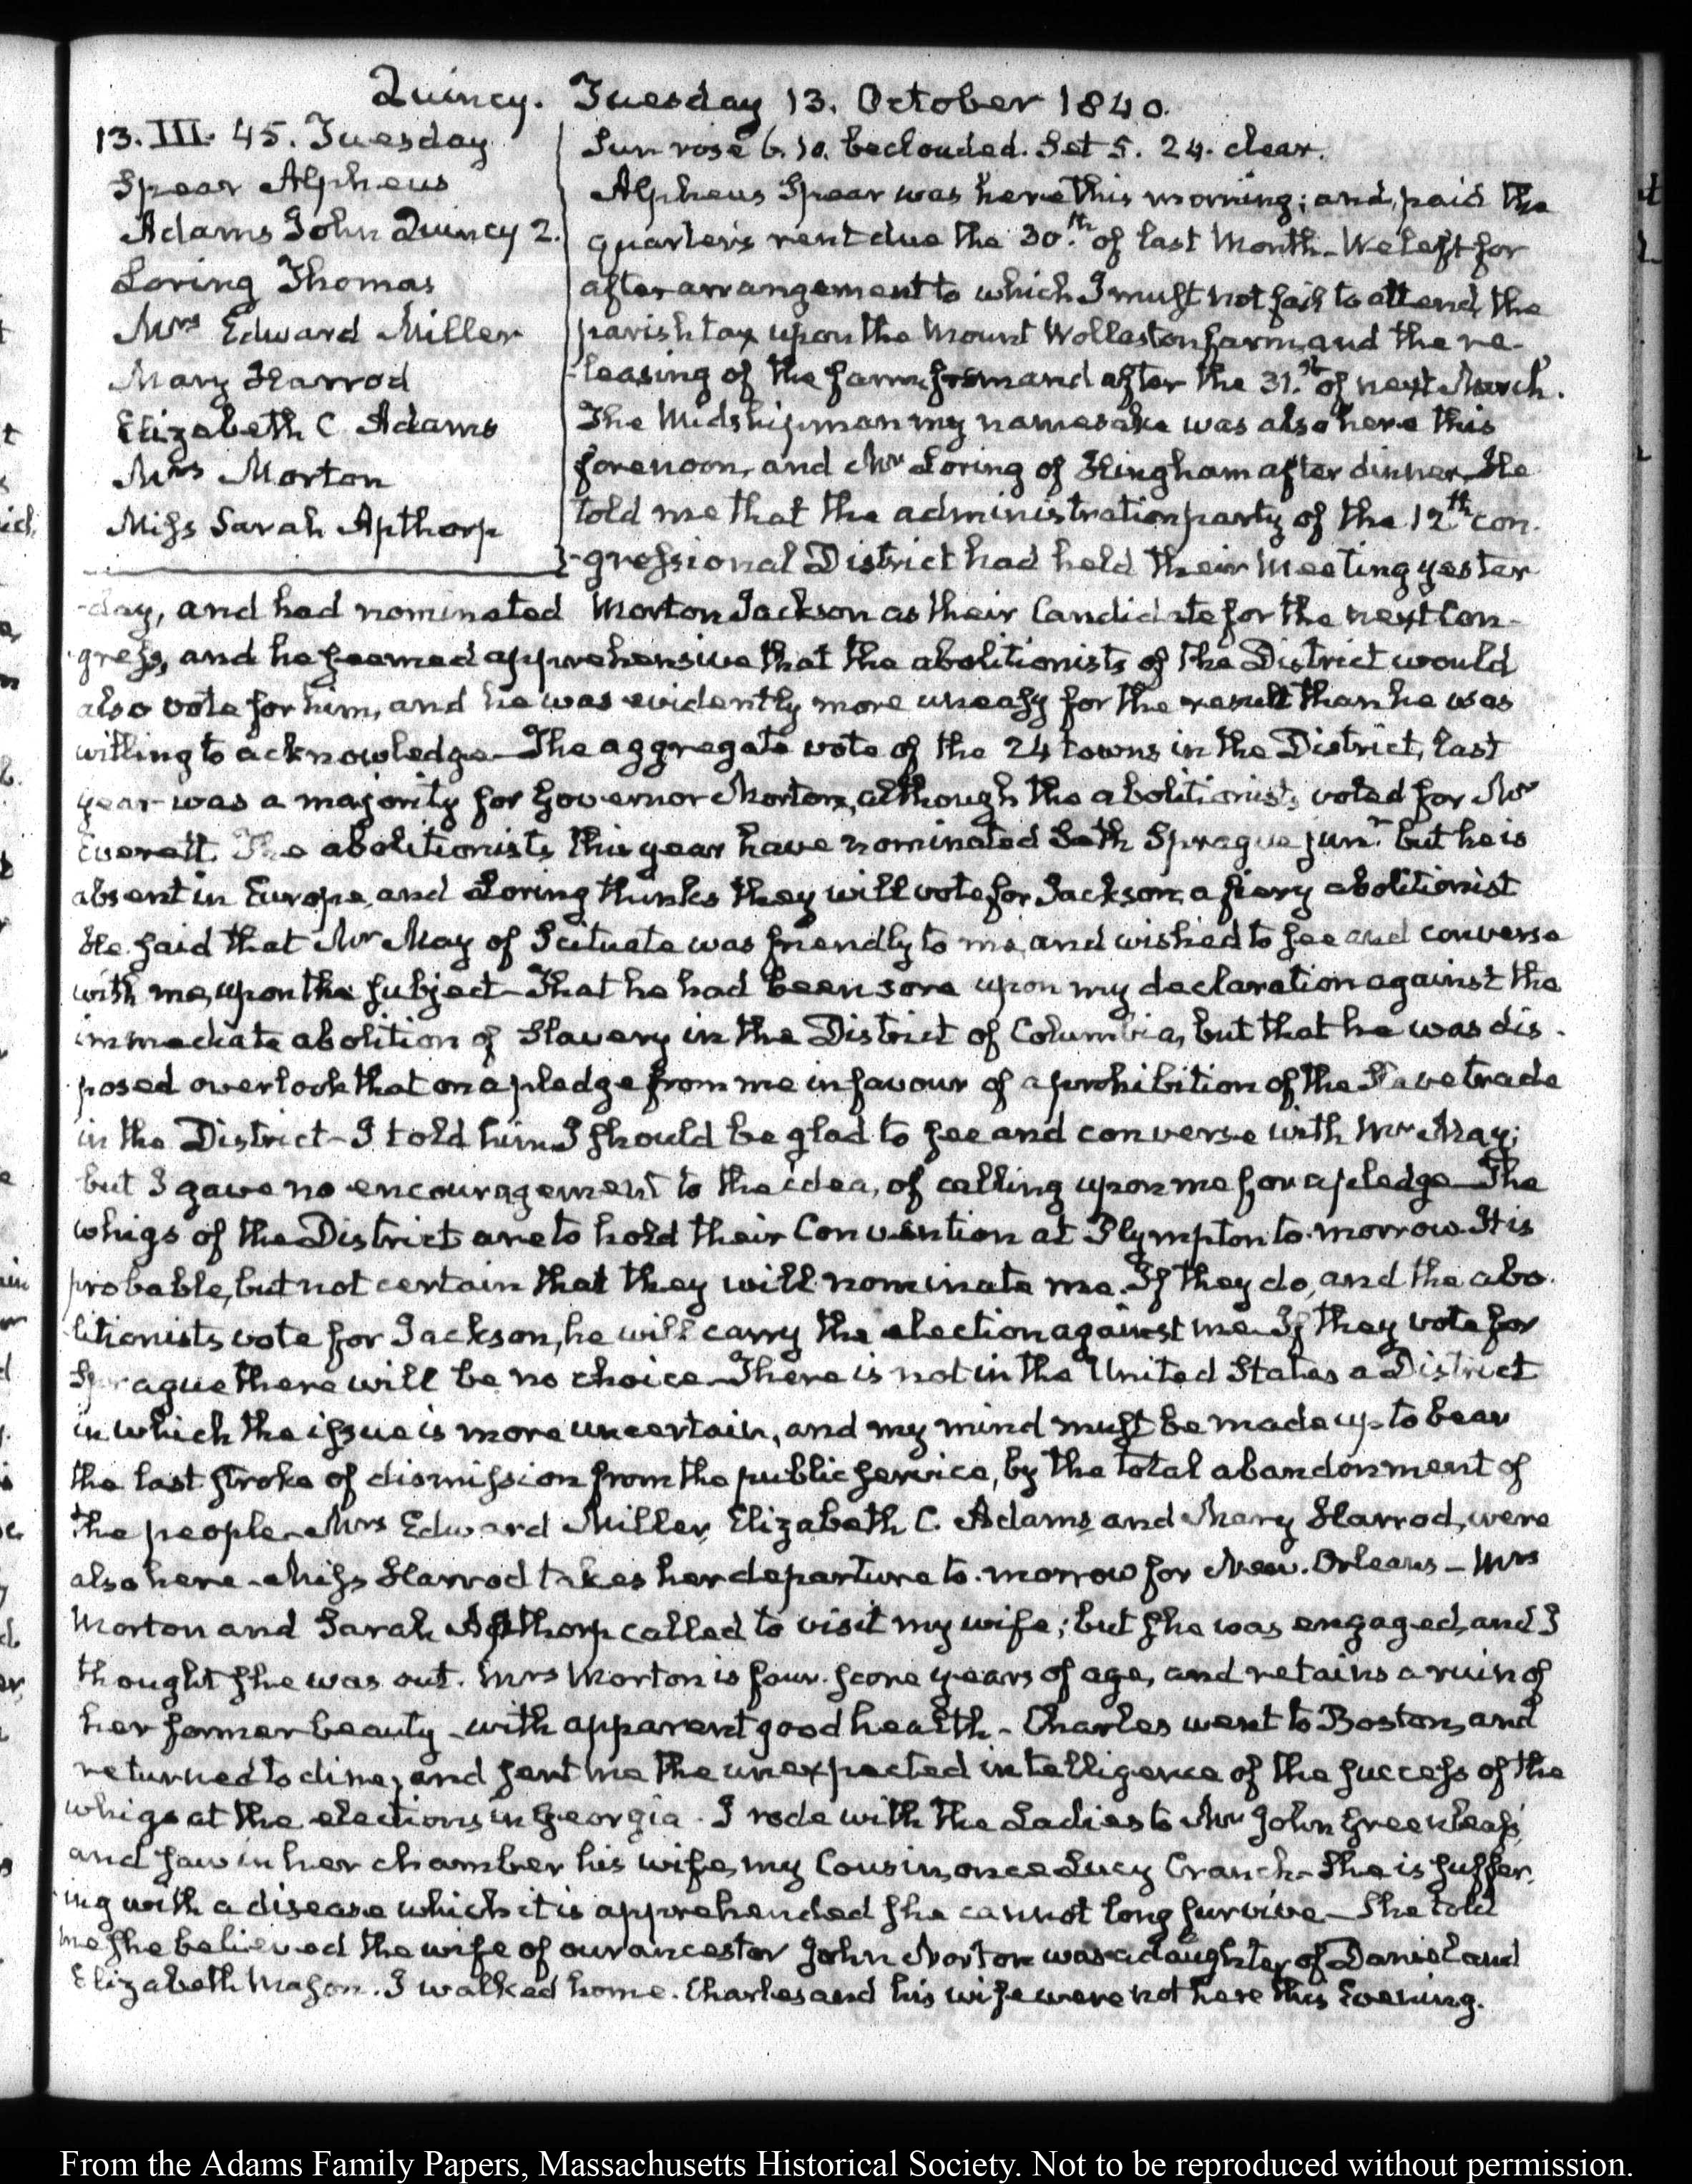 Quincy. Tuesday 13. October 1840.
13. III. 45. Tuesday
Spear Alpheus
Adams John Quincy 2.
Loring Thomas
Mrs Edward Miller
Mary Harrod
Elizabeth C. Adams
Mrs Morton
Miss Sarah Apthorp
Sun rose 6. 10. beclouded. Set 5. 24. clear.
Alpheus Spear was here this morning; and paid the
quarter's rent due the 30.th of last Month. We left for
after arrangement to which I must not fail to attend, the
parish tax upon the Mount Wollaston farm, and the re-
-leasing of the farm from and after the 31.st of next March.
The Midshipman my namesake was also here this
forenoon, and Mr Loring of Hingham after dinner. He
told me that the administration party of the 12th con-
-gressional District had held their Meeting yester-
-day, and had nominated Morton Jackson as their Candidate for the next Con-
-gress, and he seemed apprehensive that the abolitionists of the District would
also vote for him, and he was evidently more uneasy for the result than he was
willing to acknowledge—The aggregate vote of the 24 towns in the District, last
year was a majority for Governor Morton, although the abolitionists voted for Mr
Everett. The abolitionists this year have nominated Seth Sprague junr. but he is
absent in Europe, and Loring thinks they will vote for Jackson, a fiery abolitionist
He said that Mr May of Scituate was friendly to me, and wished to see and converse
with me, upon the subject—That he had been sore upon my declaration against the
immediate abolition of Slavery in the District of Columbia, but that he was dis-
posed overlook that on a pledge from me in favour of a prohibition of the Slave trade
in the District—I told him I should be glad to see and converse with Mr May;
but I gave no encouragement to the idea, of calling upon me for a pledge—The
whigs of the District are to hold their Convention at Plympton to-morrow. It is
probable, but not certain that they will nominate me. If they do, and the abo-
-litionists vote for Jackson, he will carry the election against me. If they vote for
Sprague there will be no choice—There is not in the United States a District
in which the issue is more uncertain, and my mind must be made up to bear
the last stroke of dismission from the public service, by the total abandonment of
the people—Mrs Edward Miller, Elizabeth C. Adams and Mary Harrod, were
also here—Miss Harrod takes her departure to-morrow for New-Orleans—Mrs
Morton and Sarah Apthorp called to visit my wife; but she was engaged, and I
thought she was out. Mrs Morton is four-score years of age, and retains a ruin of
her former beauty—with apparent good health—Charles went to Boston, and
returned to dine, and sent me the unexpected intelligence of the success of the
whigs at the elections in Georgia. I rode with the Ladies to Mr John Greenleaf's
and saw in her chamber his wife, my Cousin, once Lucy Cranch—She is suffer-
-ing with a disease which it is apprehended she cannot long survive—She told
me she believed the wife of our ancestor John Norton was a daughter of Daniel and
Elizabeth Mason. I walked home. Charles and his wife were not here this Evening.
From the Adams Family Papers, Massachusetts Historical Society. Not to be reproduced without permission.